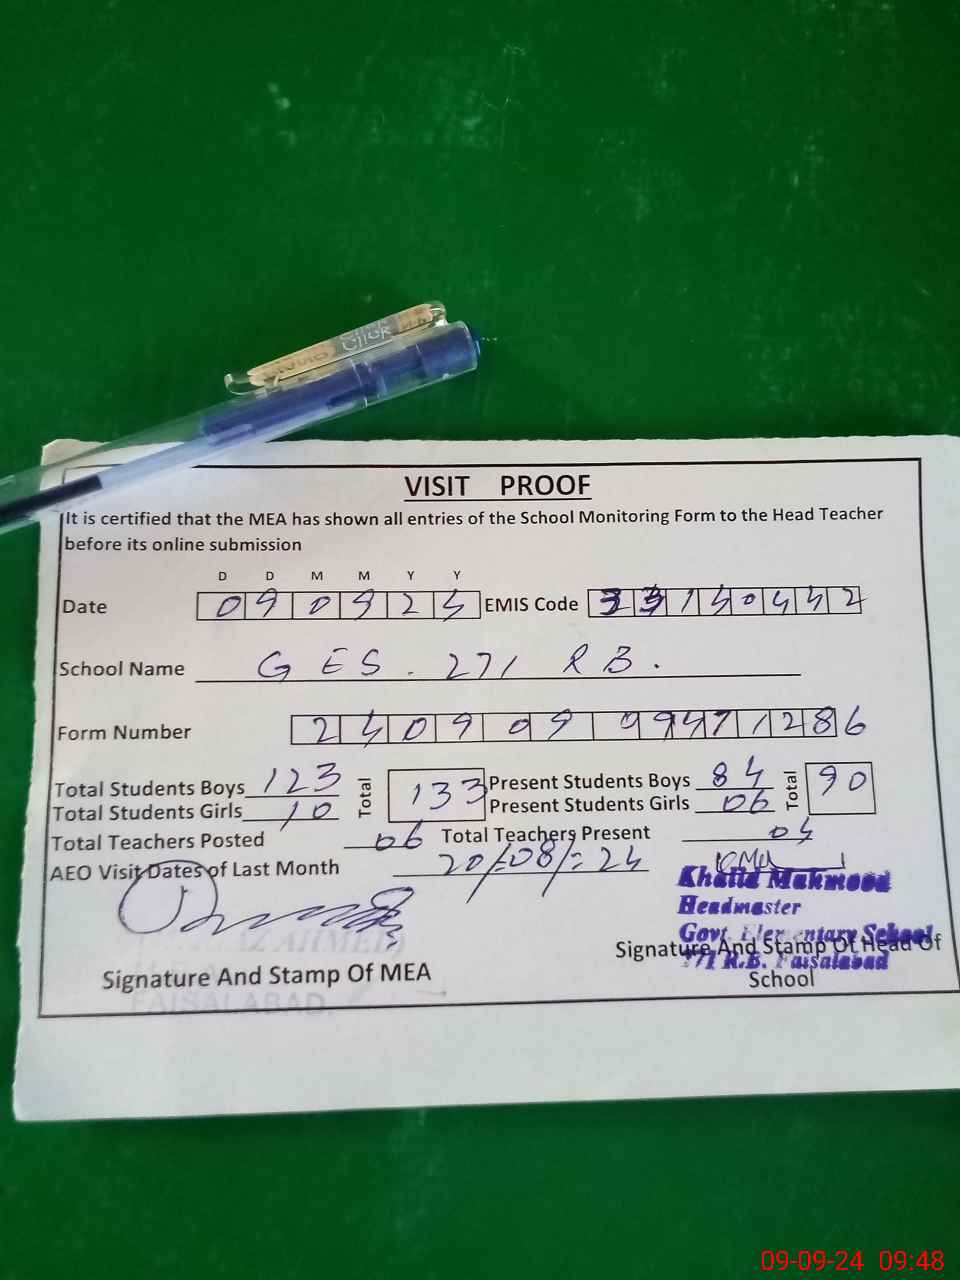 VISIT PROOF
It is certified that the MEA has shown all entries of the School Monitoring Form to the Head Teacher
before its online submission
D D M M Y Y
Date 0 9 0 9 2 4 EMIS Code 3 3 1 4 0 4 4 2
School Name G E S . 271 R B .
Form Number 2 4 0 9 0 9 0 9 4 7 1 2 8 6
Total Students Boys 123 Total 133 Present Students Boys 84 Total 90
Total Students Girls 10 Present Students Girls 06
Total Teachers Posted 06 Total Teachers Present 04
AEO Visit Dates of Last Month 20/08/24
Khalid Mahmood
Headmaster
Govt. Elementary School
271 R.B. Faisalabad
Signature And Stamp Of MEA
Signature And Stamp Of Head Of
School
AHMED)
FAISALABAD.
09-09-24 09:48